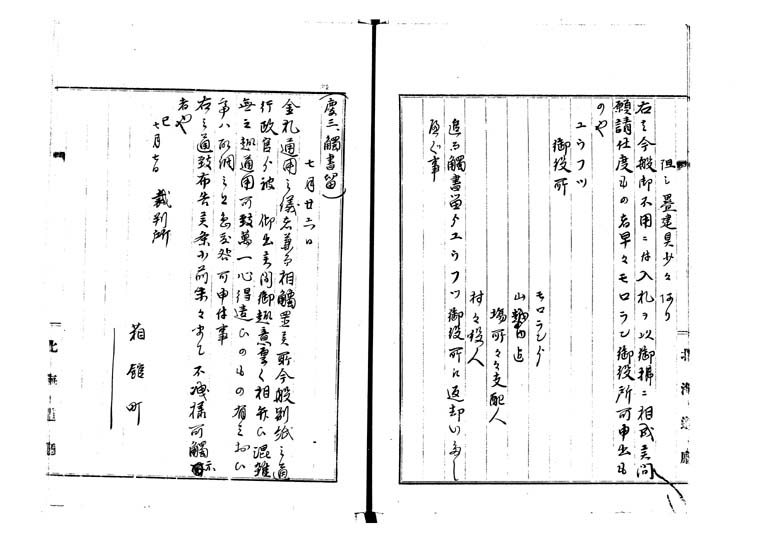 但シ畳建具少々アリ
右之今般御不用ニ付入札ヲ以御拂ニ相成候間
願請仕度もの者早々モロラン御役所可申出も
のや
ユウフツ
御役所
モロランゟ
山越内迄
場所々々支配人
村々役人
追而觸書留りユウフツ御役所江返却いたし
べく事
七月廿二日
(慶三、觸書留)
金札通用之儀者兼而相觸置候所今般別紙之通
行政官ゟ被 仰出候間御趣意厚く相弁ひ混雑
無之趣通用可致萬一心得違ひのもの有之おいひ
事ハ取調之上急度咎可申付事
右之通致布告候条小前末々まて不洩様可觸示
者や
巳七月廿日 裁判所
箱館町
北海道廳
北海道廳